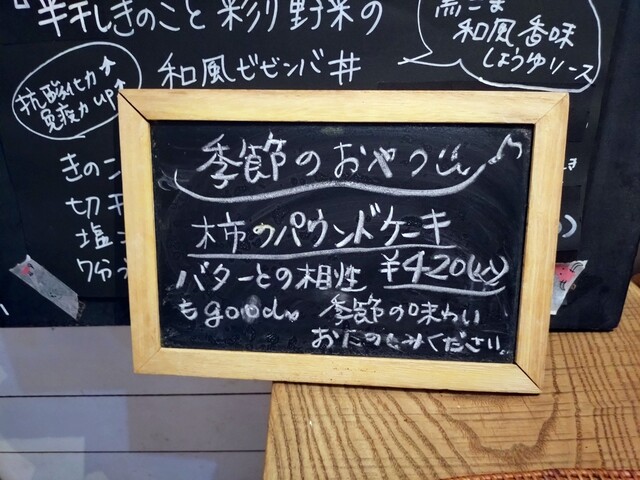 半干しきのこと彩り野菜の
和風ビビンバ丼
黒ごま
和風香味
しょうゆソース
抗酸化力↑
免疫力up↑
きのこ
切干
塩
7分
季節のおやつ♪
柿のパウンドケーキ
バターとの相性 ¥420(込)
もgood。季節の味わい
おたのしみください。